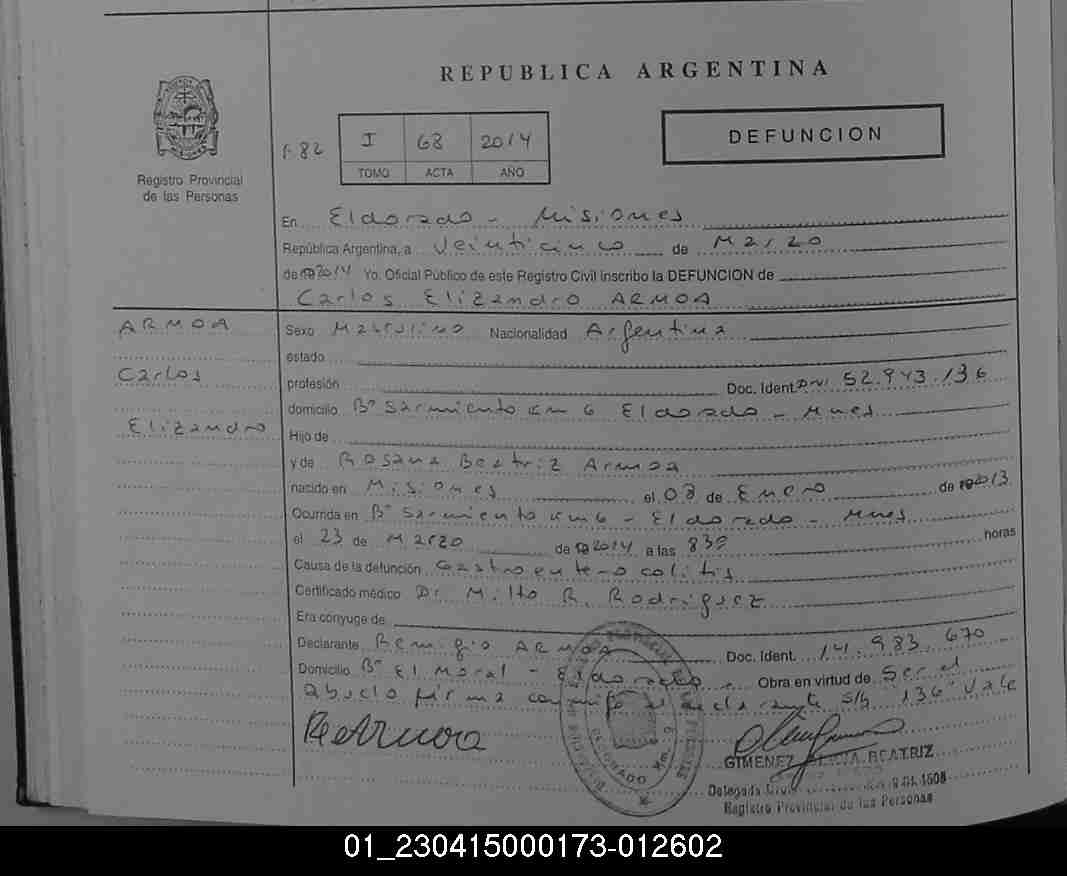 REPUBLICA ARGENTINA
F 82
I 68 2014
TOMO ACTA AÑO
DEFUNCION
Registro Provincial
de las Personas
En Eldorado - Misiones
República Argentina, a Veinticinco de Marzo
de 2014 Yo. Oficial Público de este Registro Civil inscribo la DEFUNCION de
Carlos Elizandro ARMOA
ARMOA
Carlos
Elizandro
Sexo Masculino Nacionalidad Argentina
estado
profesión Doc. Ident. DNI 52.943.136
domicilio Bº Sarmiento Km 6 Eldorado - Mnes
Hijo de
y de Rosana Beatriz Armoa
nacido en Misiones el 08 de Enero de 2013
Ocurrida en Bº Sarmiento Km 6 - Eldorado - Mnes
el 23 de Marzo de 2014 a las 830 horas
Causa de la defunción Gastroenterocolitis
Certificado médico Dr Milto R. Rodriguez
Era conyuge de
Declarante Remigio ARMOA Doc. Ident. 14.983.670
Domicilio Bº El Moral - Eldorado - Obra en virtud de Ser el
abuelo firma conmigo el declarante S/b 136 Vale
Re Armoa
ELDORADO Km. 6
GIMENEZ ALICIA BEATRIZ
Delegada
Registro Provincial de las Personas
01_230415000173-012602